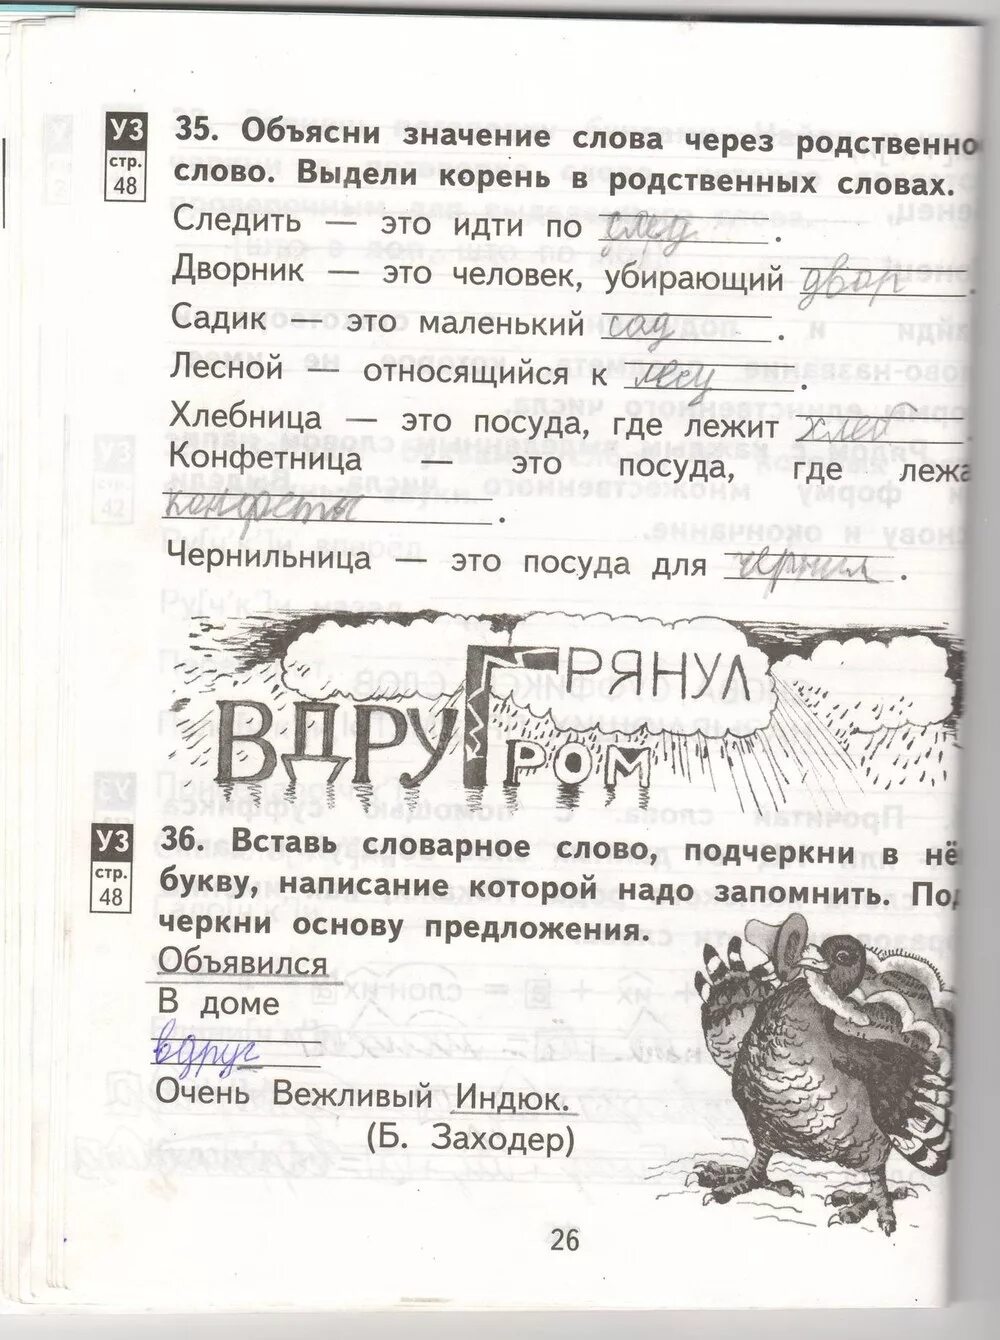 УЗ
стр.
48
35. Объясни значение слова через родственно
слово. Выдели корень в родственных словах.
Следить — это идти по след.
Дворник — это человек, убирающий двор.
Садик — это маленький сад.
Лесной — относящийся к лесу.
Хлебница — это посуда, где лежит хлеб
Конфетница — это посуда, где лежа
конфеты.
Чернильница — это посуда для чернил.
ВДРУГ ГРЯНУЛ
ГРОМ
УЗ
стр.
48
36. Вставь словарное слово, подчеркни в нё
букву, написание которой надо запомнить. Под
черкни основу предложения.
Объявился
В доме
вдруг
Очень Вежливый Индюк.
(Б. Заходер)
26